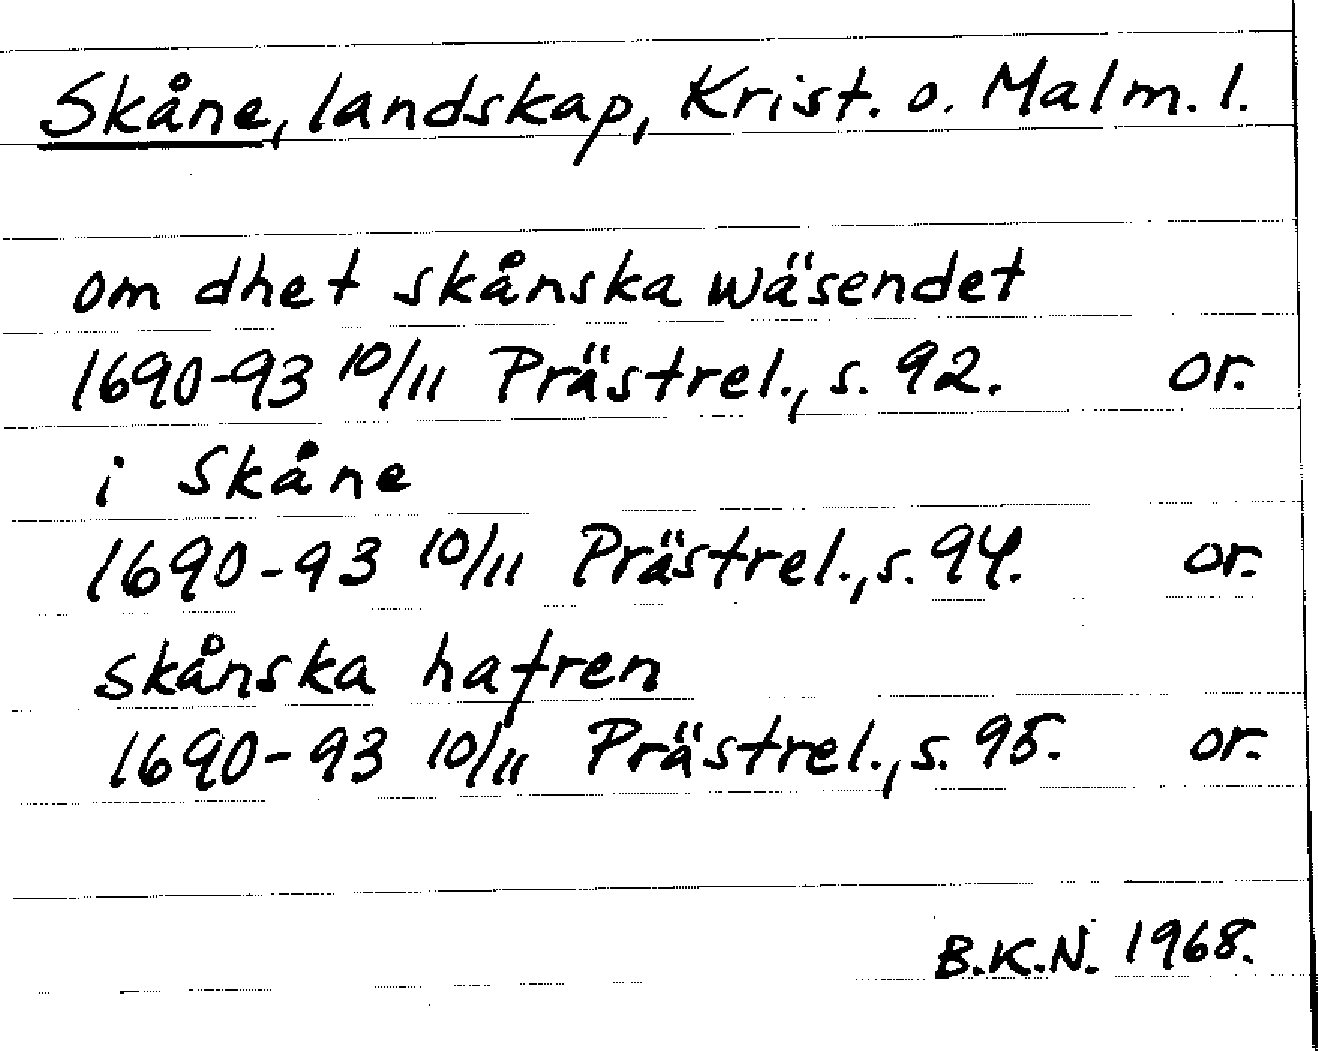 Skåne, landskap, Krist. o. Malm. l.
om dhet skånska wäsendet
1690-93 10/11 Prästrel., s. 92. or.
i Skåne
1690-93 10/11 Prästrel., s. 94. or.
skånska hafren
1690-93 10/11 Prästrel., s. 95. or.
B.K.N. 1968.